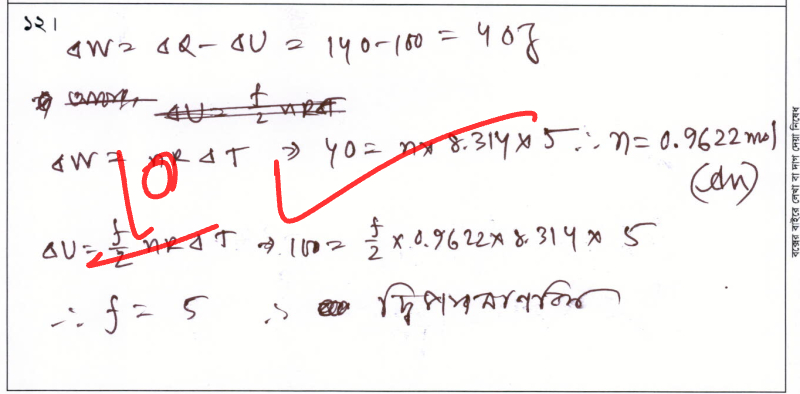 ১২।
ΔW = ΔQ - ΔU = 140-100 = 40J
ΔU = f/2 nRΔT
ΔW = nRΔT ⇒ 40 = n × 8.314 × 5 ∴ n = 0.9622 mol
(Ans)
10
ΔU = f/2 nRΔT ⇒ 100 = f/2 × 0.9622 × 8.314 × 5
∴ f = 5 ∴ দ্বিপারমাণবিক
বক্সের বাইরে লেখা বা দাগ দেয়া নিষেধ